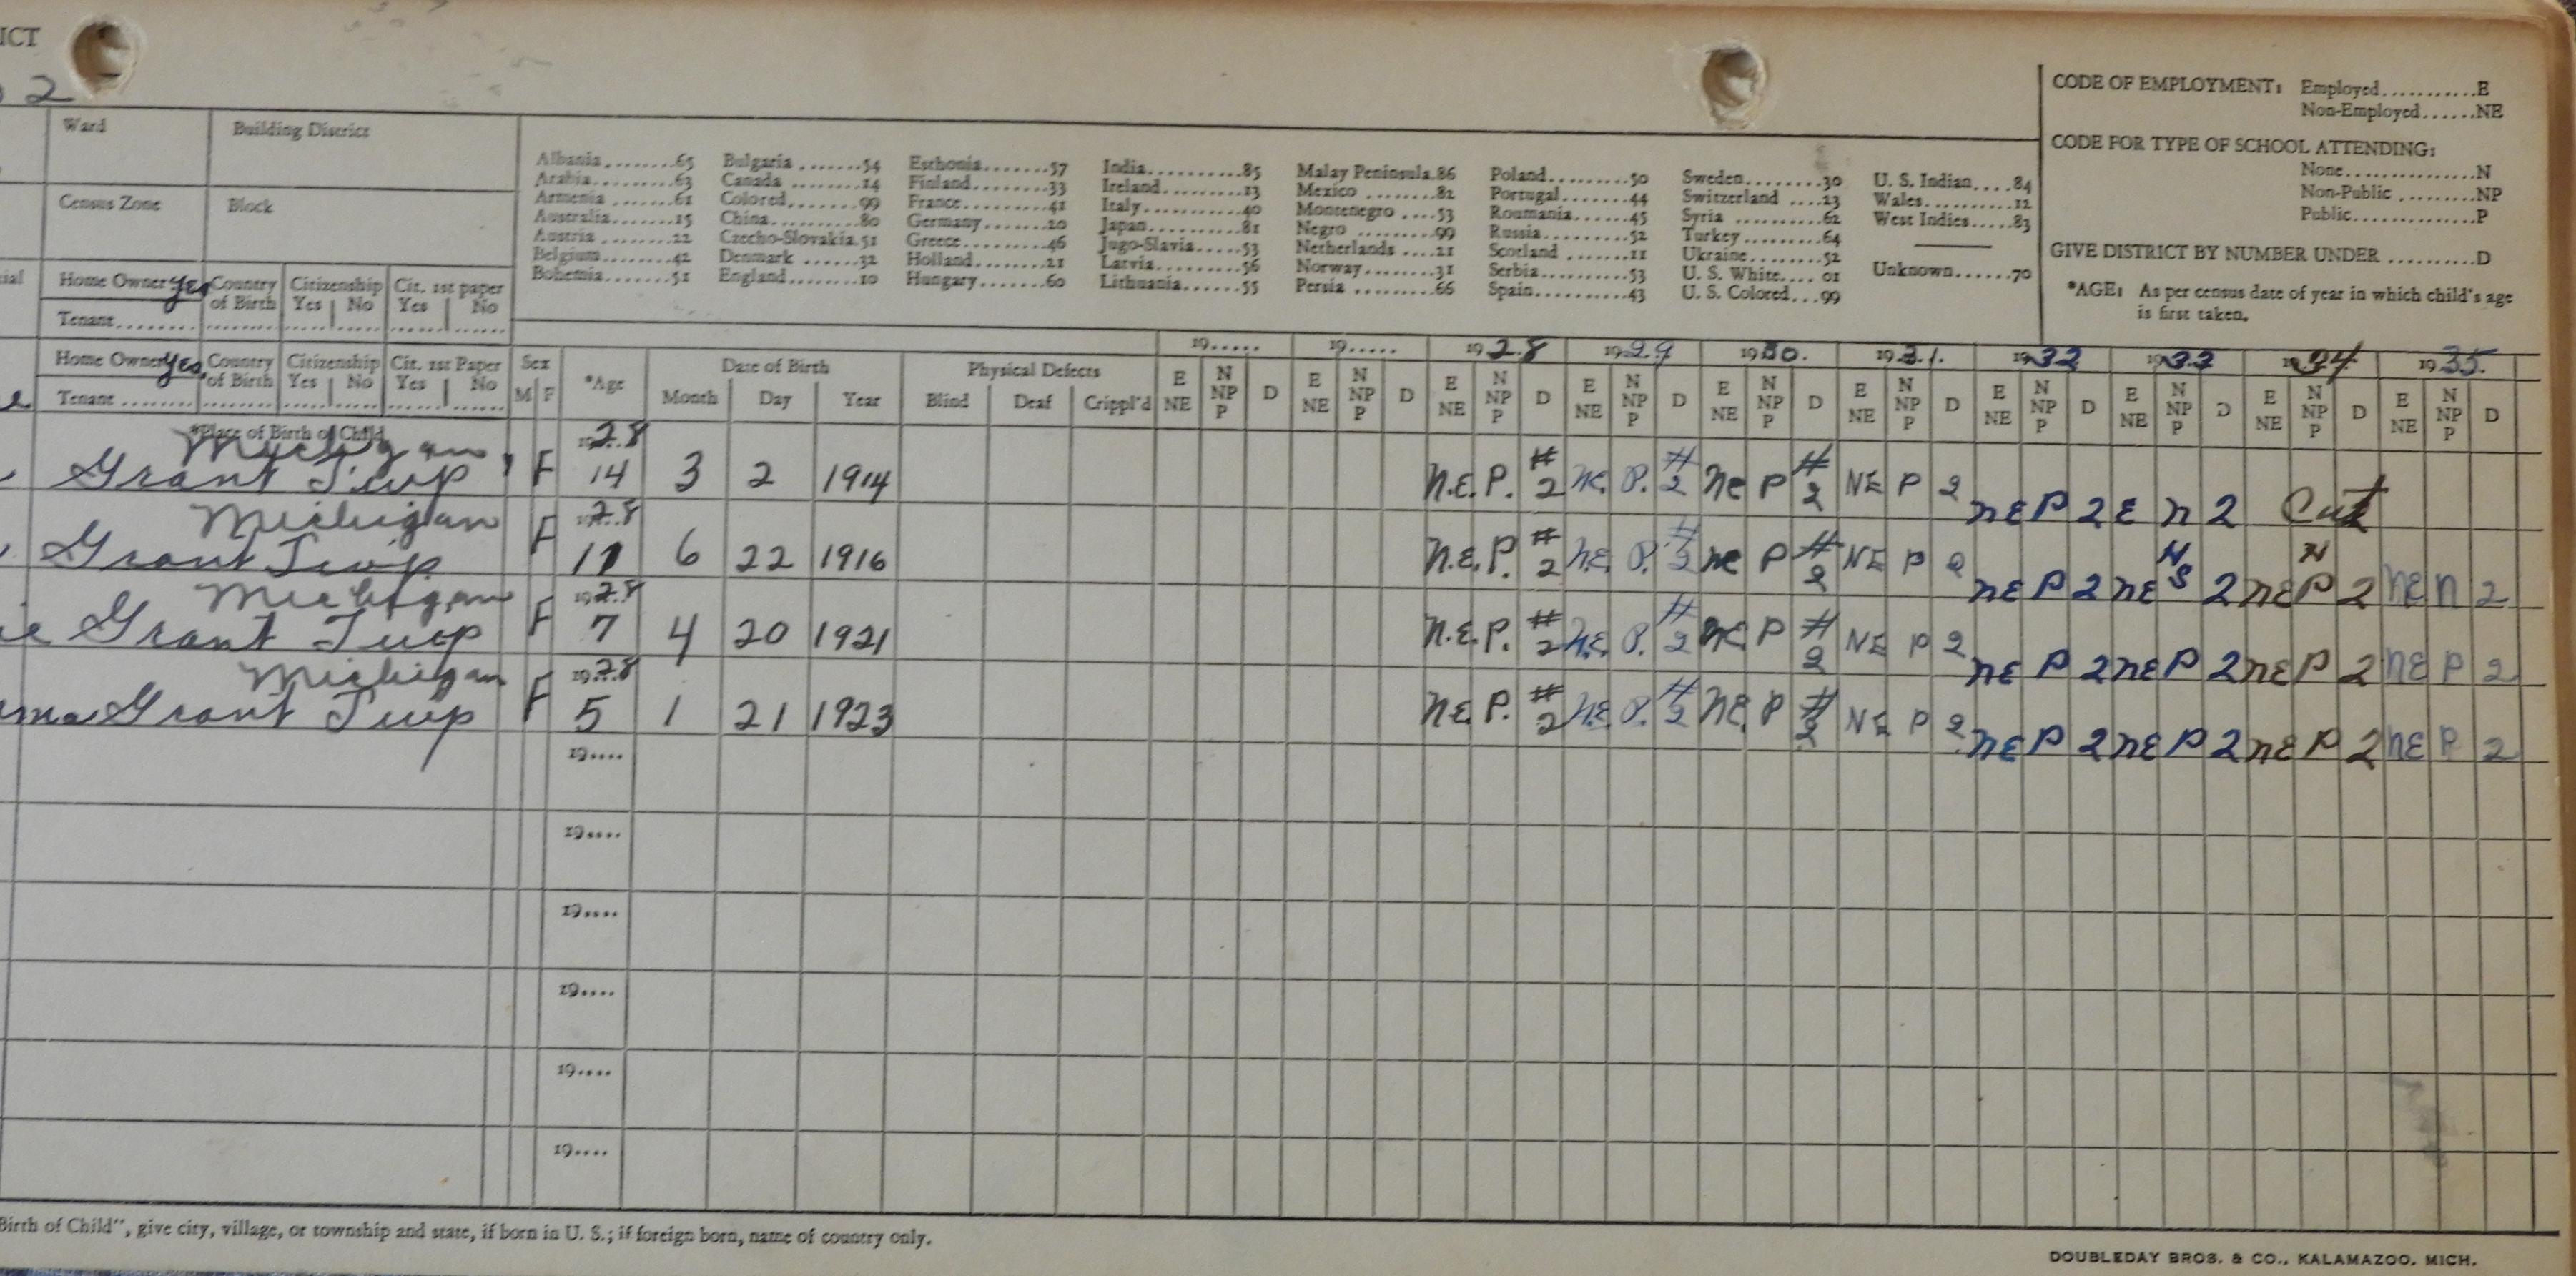 ICT
2
CODE OF EMPLOYMENT: Employed...........E
Non-Employed......NE
CODE FOR TYPE OF SCHOOL ATTENDING:
None..............N
Non-Public .........NP
Public..............P
GIVE DISTRICT BY NUMBER UNDER ..........D
*AGE: As per census date of year in which child's age
is first taken.
Ward Building District
Census Zone Block
Albania........65 Bulgaria .......54 Esthonia.......57 India..........85 Malay Peninsula.86 Poland.........50 Sweden........30 U. S. Indian....84
Arabia.........63 Canada ........14 Finland........33 Ireland.........13 Mexico ........82 Portugal.......44 Switzerland ....23 Wales..........12
Armenia .......61 Colored........99 France.........41 Italy...........40 Montenegro ....53 Roumania......45 Syria ..........62 West Indies.....83
Australia.......15 China.........80 Germany.......20 Japan..........81 Negro .........99 Russia.........52 Turkey.........64
Austria ........22 Czecho-Slovakia.51 Greece.........46 Jugo-Slavia.....53 Netherlands ....21 Scotland .......11 Ukraine........52 Unknown.......70
Belgium........42 Denmark ......32 Holland........21 Latvia..........56 Norway........31 Serbia.........53 U. S. White.... 01
Bohemia.......51 England........10 Hungary.......60 Lithuania.......55 Persia .........66 Spain..........43 U. S. Colored...99
ial Home Owner Yes Country of Birth Citizenship Yes No Cit. 1st paper Yes No
Tenant........
Home Owner Yes Country of Birth Citizenship Yes No Cit. 1st Paper Yes No
Tenant ........
Sex M F *Age Date of Birth Month Day Year Physical Defects Blind Deaf Crippl'd
19..... 19..... 1928 1929 1930. 1931. 1932 1933 1934 1935.
E NE N NP P D E NE N NP P D E NE N NP P D E NE N NP P D E NE N NP P D E NE N NP P D E NE N NP P D E NE N NP P D E NE N NP P D E NE N NP P D
*Place of Birth of Child
Michigan 1928
Grant Twp F 14 3 2 1914 N.E. P. #2 NE. P. #2 Ne P #2 NE P 2 NE P 2 E N 2 Cut
Michigan 1928
Grant Twp F 11 6 22 1916 N.E. P. #2 N.E. P. #2 Ne P #2 NE P 2 NE P 2 NE HS 2 NE P 2 NE N 2
Michigan 1928
ie Grant Twp F 7 4 20 1921 N.E. P. #2 N.E. P. #2 NE P #2 NE P 2 NE P 2 NE P 2 NE P 2 NE P 2
Michigan 1928
ma Grant Twp F 5 1 21 1923 N.E. P. #2 N.E. P. #2 NE. P #2 NE P 2 NE P 2 NE P 2 NE P 2 NE P 2
19....
19....
19....
19....
19....
19....
Birth of Child", give city, village, or township and state, if born in U. S.; if foreign born, name of country only.
DOUBLEDAY BROS. & CO., KALAMAZOO. MICH.